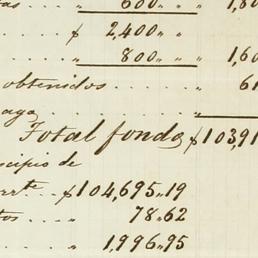 as . . . . „ 600 „ „ „ 1,80
. . . . $ 2,400 „ „
. . . . „ 800 „ „ „ 1,60
obtenidos . . . . „ 61
aga . . . . „
Total fondos $103,91
cipio de
rte $104,695 „ 19
tos . . . „ 78 „ 62
. . . „ 1,996 „ 95